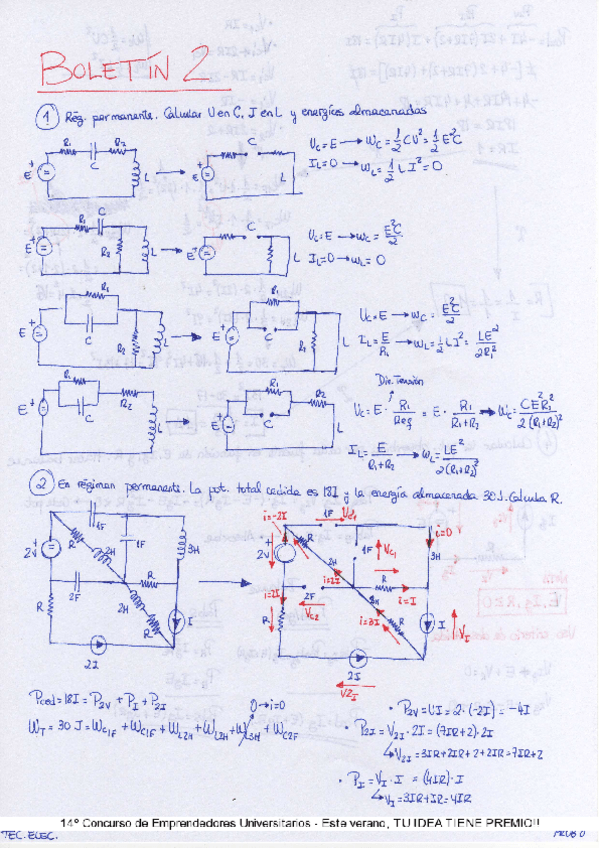 BOLETÍN 2
1 Rég. permanente. Calcular U en C, I en L y energías almacenadas
Uc=E → Wc = 1/2 CU² = 1/2 E²C
IL=0 → WL = 1/2 L I² = 0
R1 R2 C E L
C L
Uc=E → Wc = E²C/2
IL=0 → WL = 0
R1 C R2 L E
C E L
Uc=E → Wc = EC²/2
IL = E/R1 → WL = 1/2 LI² = LE²/2R1²
Div. Tensión
Uc = E · R1/Req = E · R1/(R1+R2) → Wc = CE²R1²/2(R1+R2)²
IL = E/(R1+R2) → WL = LE²/2(R1+R2)²
2 En régimen permanente. La pot. total cedida es 18I y la energía almacenada 30J. Calcula R.
1F 1F 3H 2H 2V 2F R 2H R R I 2I
i=-2I 1F Vc1 i=0 2V R 1F Vc1 3H 2H R i=2I i=2I 2F Vc2 i=I i=3I R I VI 2I V2I
Pced = 18I = P2V + PI + P2I
0→i=0
WT = 30 J = Wc1F + Wc1F + WL2H + WL2H + WL3H + Wc2F
• P2V = U·I = 2·(-2I) = -4I
• P2I = V2I · 2I = (7IR+2)·2I
V2I = 3IR+2IR+2+2IR = 7IR+2
• PI = VI · I = (4IR)·I
VI = 3IR+IR = 4IR
14º Concurso de Emprendedores Universitarios - Este verano, TU IDEA TIENE PREMIO!!
TEC. ELEC.